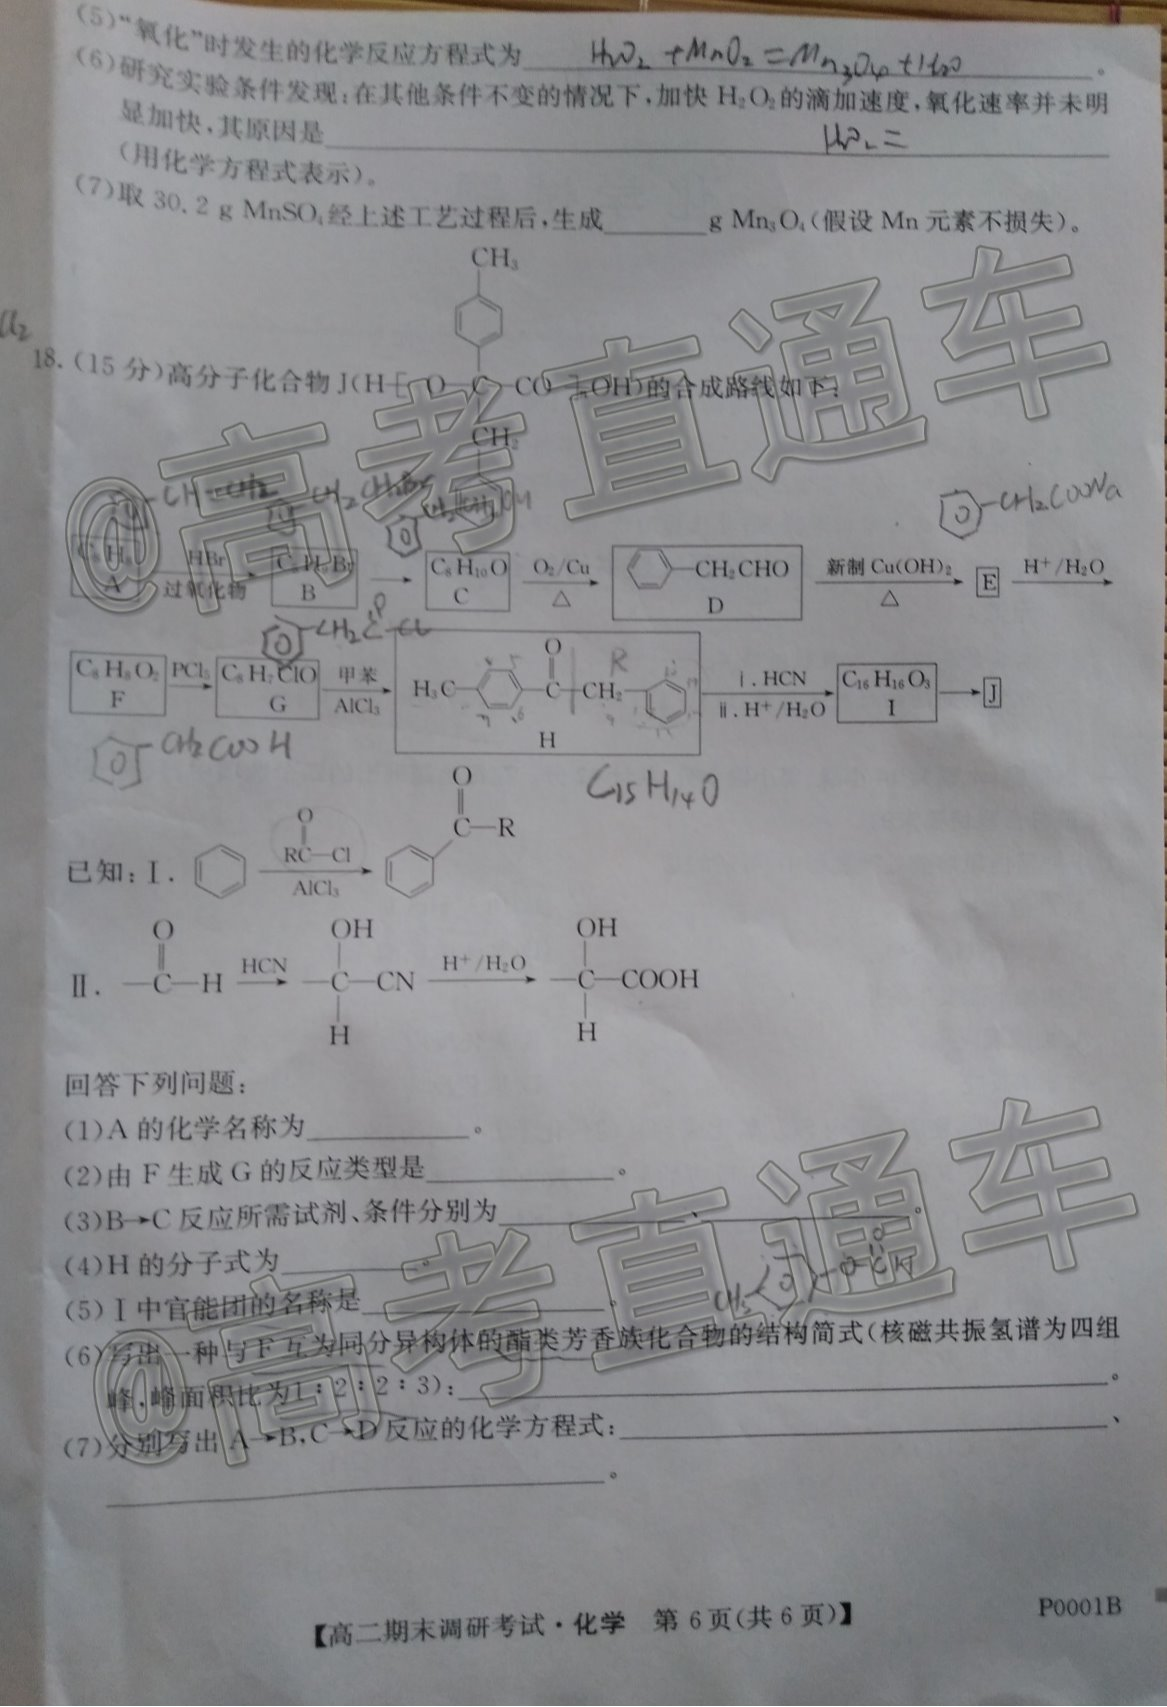 (5)“氧化”时发生的化学反应方程式为 H₂O₂+MnO₂=Mn₃O₄+H₂O 。
(6)研究实验条件发现:在其他条件不变的情况下,加快 H₂O₂ 的滴加速度,氧化速率并未明
显加快,其原因是 H₂O₂=
(用化学方程式表示)。
(7)取 30.2 g MnSO₄ 经上述工艺过程后,生成 g Mn₃O₄(假设 Mn 元素不损失)。
CH₃
18.(15 分)高分子化合物 J(H [ O—C—CO ] OH)的合成路线如下:
CH₂
—CH=CH₂
CH₂CH₂Br
CH₂CH₂OH
—CH₂COONa
C₈H₈
A
HBr
过氧化物
C₈H₉Br
B
C₈H₁₀O
C
O₂/Cu
△
—CH₂CHO
D
新制 Cu(OH)₂
△
E
H⁺/H₂O
—CH₂C—Cl
O
C₈H₈O₂
F
PCl₃
C₈H₇ClO
G
甲苯
AlCl₃
O
H₃C— —C—CH₂—
R
H
ⅰ.HCN
ⅱ.H⁺/H₂O
C₁₆H₁₆O₃
I
J
—CH₂COOH
C₁₅H₁₄O
已知:Ⅰ.
O
RC—Cl
AlCl₃
O
C—R
Ⅱ.
O
—C—H
HCN
OH
—C—CN
H
H⁺/H₂O
OH
—C—COOH
H
回答下列问题:
(1)A 的化学名称为 。
(2)由 F 生成 G 的反应类型是 。
(3)B→C 反应所需试剂、条件分别为 、 。
(4)H 的分子式为 。
(5)I 中官能团的名称是 。
CH₃— —O—C—H
O
(6)写出一种与 F 互为同分异构体的酯类芳香族化合物的结构简式(核磁共振氢谱为四组
峰,峰面积比为 1:2:2:3): 。
(7)分别写出 A→B、C→D 反应的化学方程式: 、
。
【高二期末调研考试·化学 第 6 页(共 6 页)】
P0001B
@高考直通车
@高考直通车